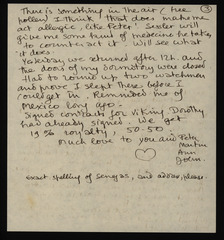 There is something in the air (tree
pollen I think) that does make me
act allergic, like Peter. Sexler will
give me some kind of medicine he takes
to counteract it. Will see what
it does.
Yesterday we returned after 12h and
the doors of my dormitory was closed
Had to round up two watchman
and prove I slept there before I
could get in. Reminded me of
Mexico long ago.
Signed contracts for Viking Dorothy
had already signed. We get
15% royalty, 50-50
Much love to you and Peter
Martin
Ann
John.
exact spelling of Senegas, and address please.